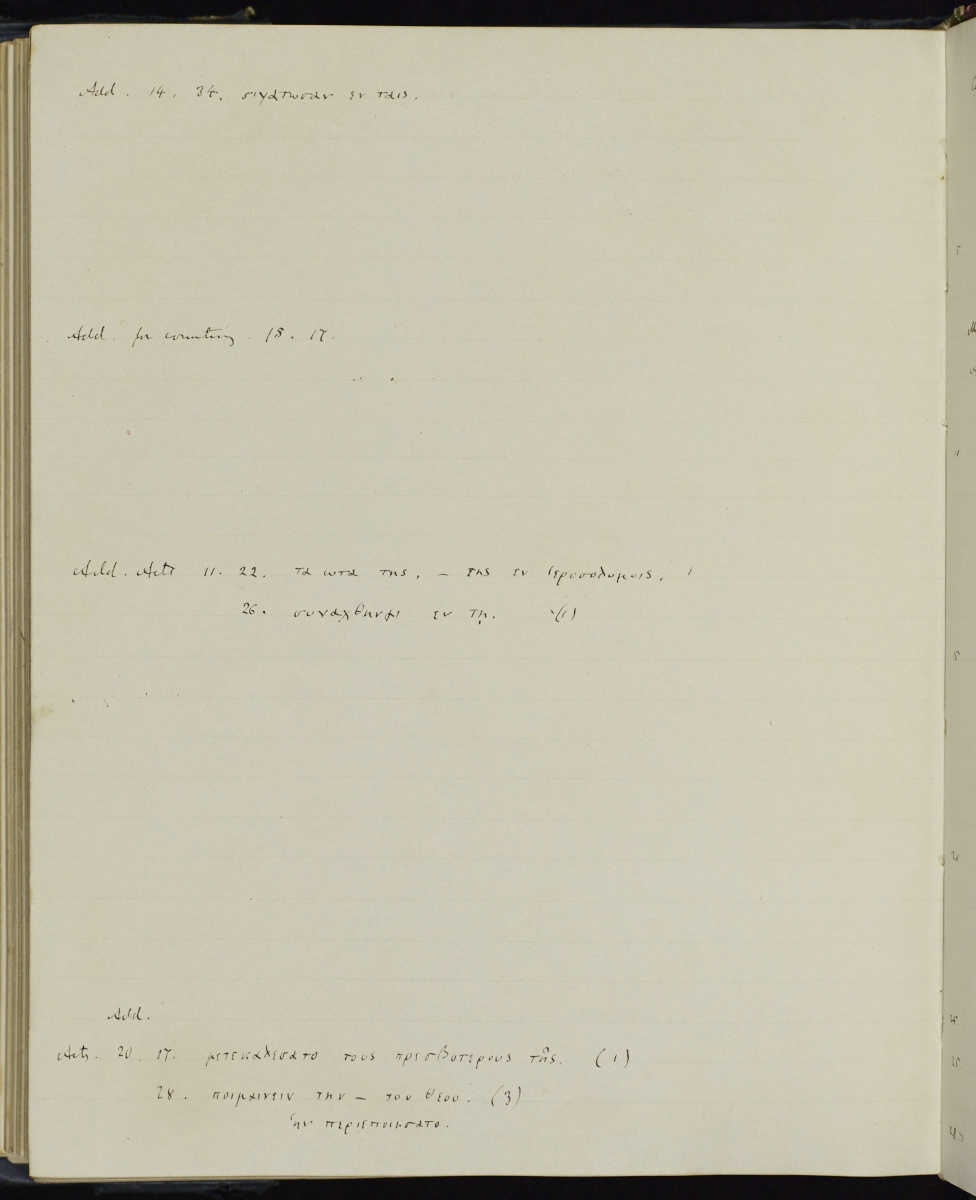 Add. 14. 34. σιγατωσαν εν ταις.
Add. for counting. 18. 17.
Add. Acts 11. 22. τα ωτα της. – της εν Ιεροσολυμοις. 1
26. συναχθηναι εν τη. (1)
Add.
Acts. 20. 17. μετεκαλεσατο τους πρεσβυτερους της. (1)
28. ποιμαινειν την – του θεου. (3)
ἡν περιεποιησατο.
5
11
15
20
25